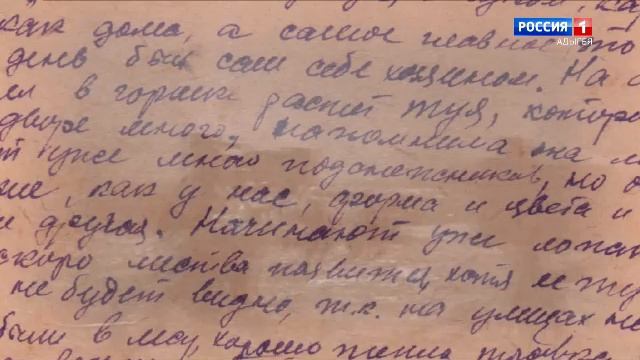 РОССИЯ 1
АДЫГЕЯ
как дома, а самое главное что
день был сам себе хозяином. На
в горшке растет туя, которо
дворе много, напомнила она м
т уже много подснежников, но о
ие, как у нас, форма и цвета и
и другая. Начинают уже лопат
скоро листва появится, хотя и
не будет видно, т.к. на улицах
были в лесу, хорошо